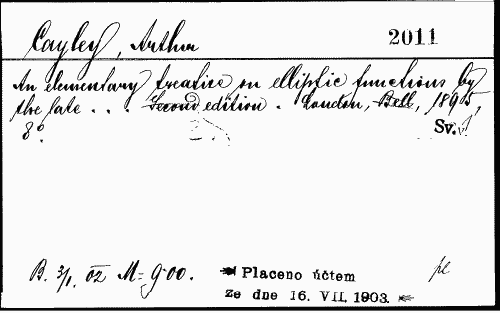 Cayley, Arthur
2011
An elementary treatise on elliptic functions by
the late . . . Second edition . London, Bell, 1895,
8°.
Sv.
B. 3/1. 02 M= 9·00.
Placeno účtem
ze dne 16. VII. 1903.